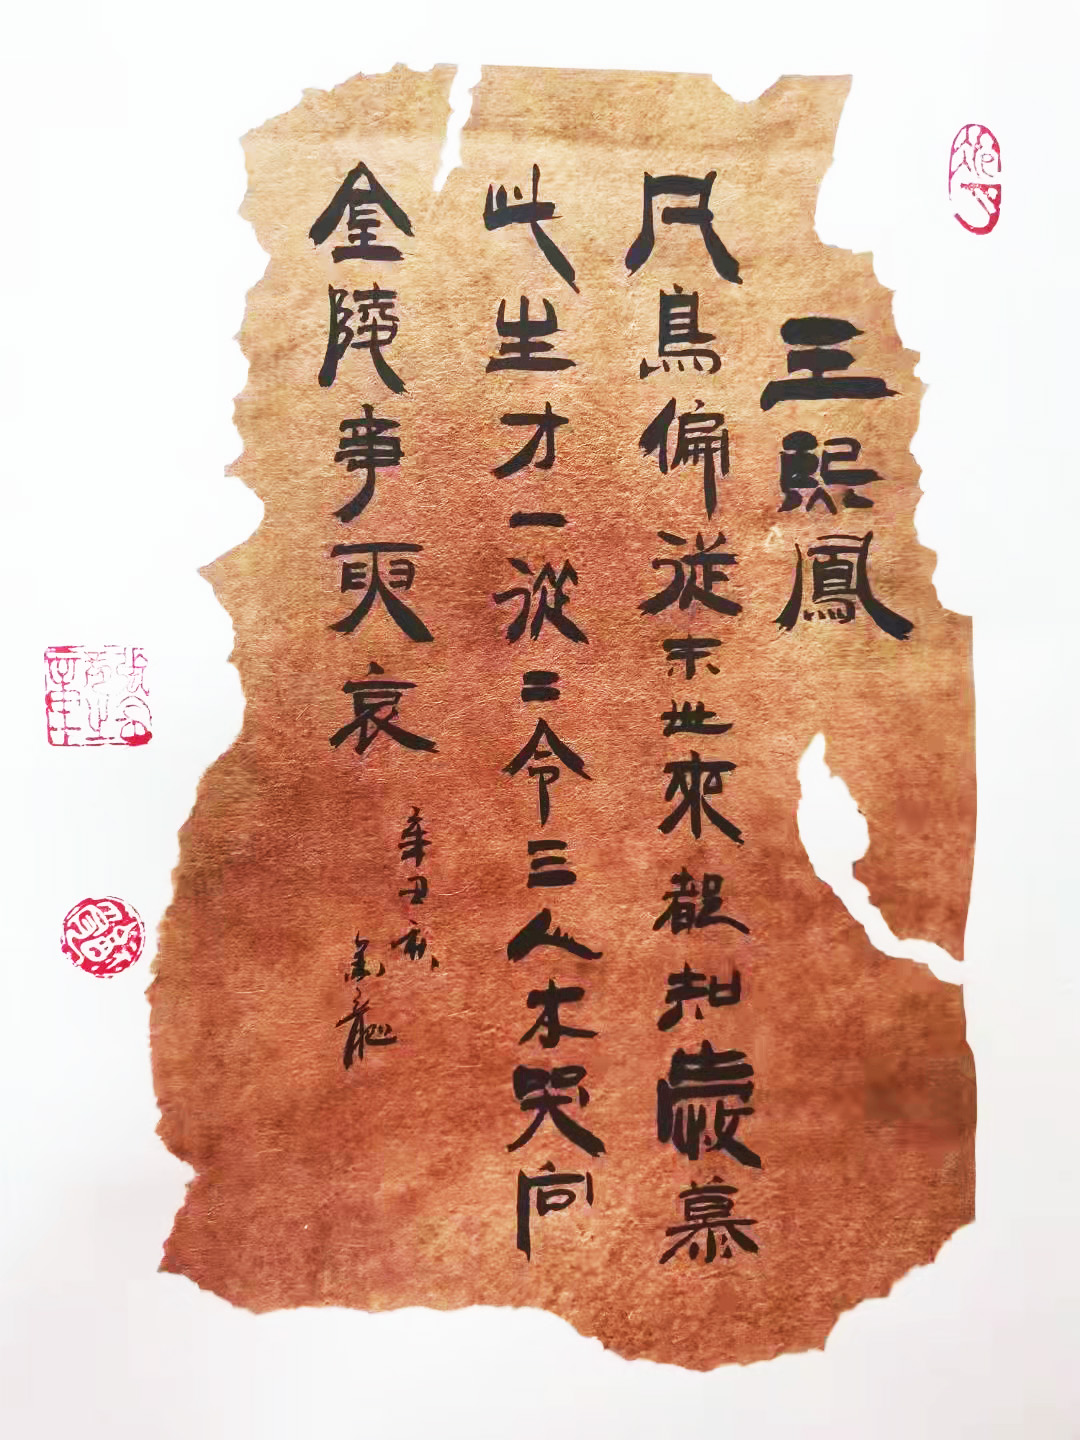 王熙鳳
凡鳥偏從末世來都知愛慕
此生才一從二令三人木哭向
金陵事更哀
辛丑秋
龍